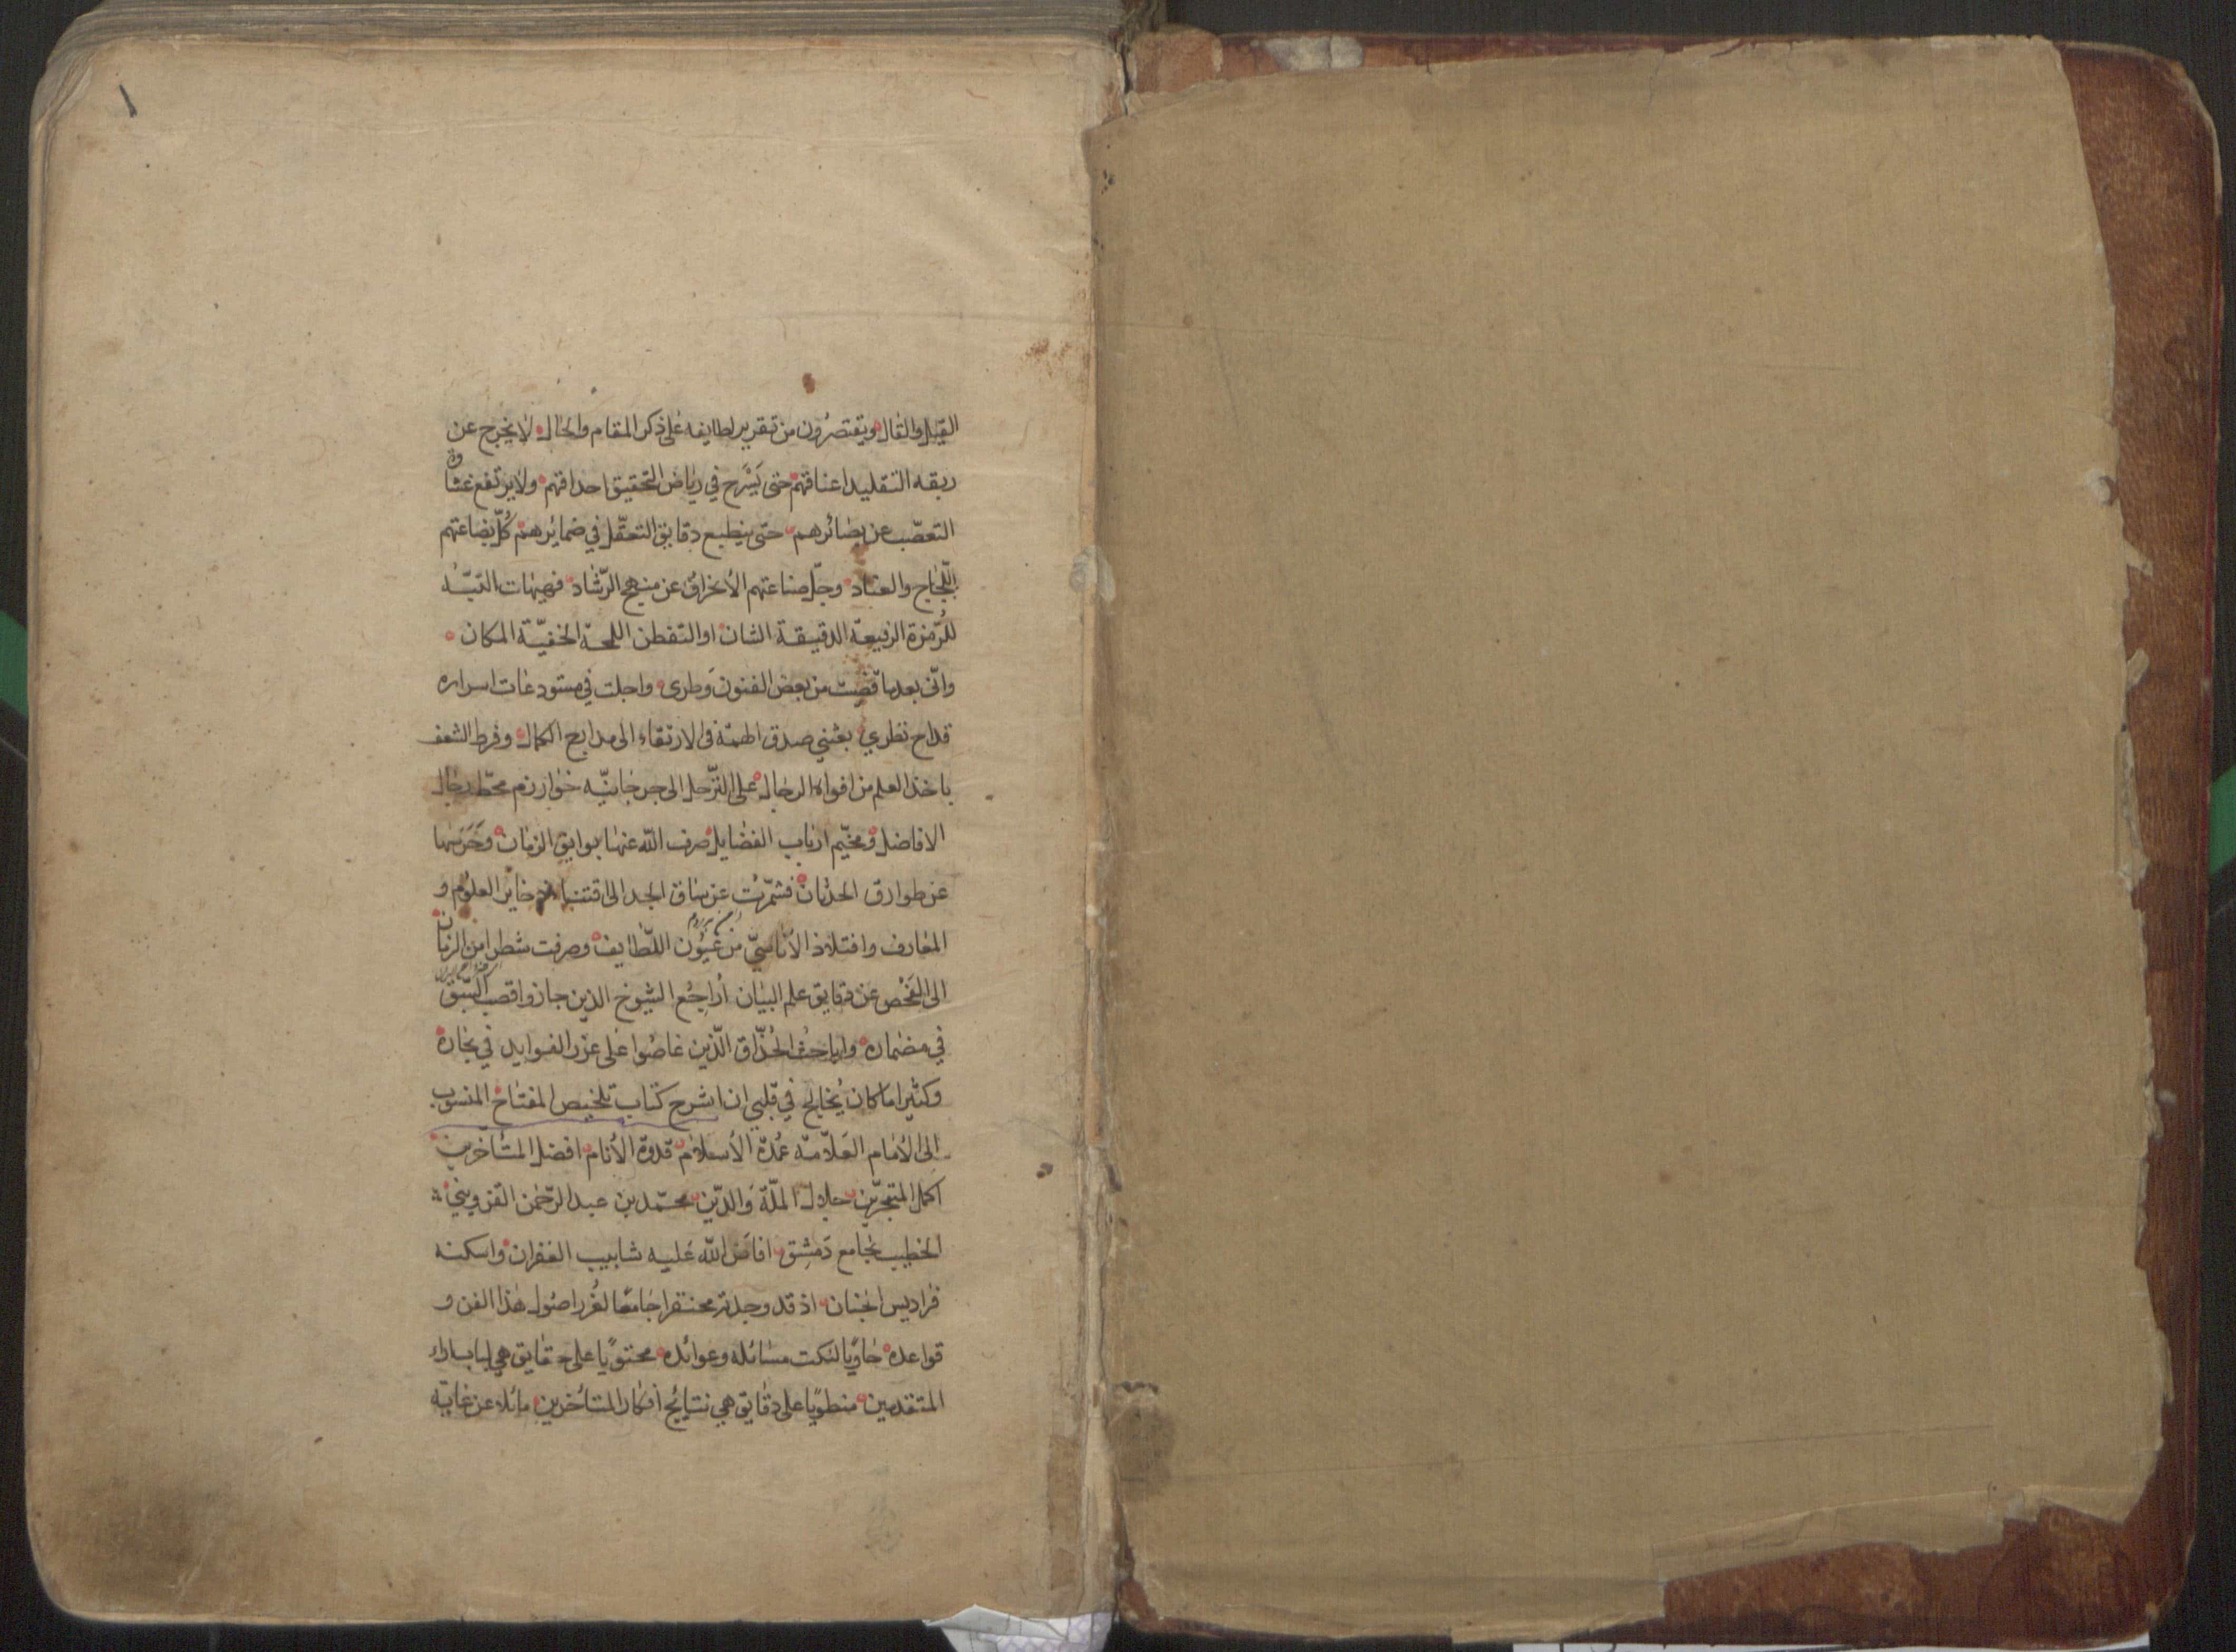 ١
القيل والقال ويقتصرون من تقرير لطايفه على ذكر المقام والحال لا يخرج عن
ربقه التقليد اعناقهم حتى يَسْرح في رياض التحقيق احداقهم ولا يرتفع غشاوة
التعصّب عن بصائرهم حتى ينطبع دقايق التعقّل في ضمائرهم كُلّ بضاعتهم
اللّجاج والعناد وجلّ صناعتهم الانحراف عن منهج الرّشاد فهيهات التنبّه
للرّمزة الرفيعة الدقيقة الشان او التفطن اللمحة الخفيّة المكان
وانّى بعد ما قضيت من بعض الفنون وَطرى واجلت في مستودعات اسراره
قداح نظري بعثني صدق الهمّة فى الارتقاء الى مدارج الكمال وفرط الشعف
باخذ العلم من افواه الرجال على الترّحل الى جرجانيّه خوارزم محطّ رحال
الافاضل ومخيّم ارباب الفضايل صرف اللّه عنها بوايق الزمان وحَرَسَها
عن طوارق الحدثان فشمّرت عن ساق الجد الى اقتناء ذخاير العلوم و
المعارف وافتلاذ الاناسيّ من عُيُون اللّطايف وصرفت شطرا من الزمان
الى الفَحْص عن دقايق علم البيان أراجِع الشيوخ الذين حازوا قصب السّبق
في مضماره واباحث الحُذّاق الّذين غاصُوا على غرر الفوايد في بحاره
وكثيرا ما كان يُخالج في قلبي ان اشرح كتاب تلخيص المفتاح المنسوب
الى الامام العَلاّمة عُمدة الاسلام قدوة الانام افضل المتأخرين
اكمل المتبحرّين جلال الملّة وَالدّين محمّد بن عبد الرّحمن القزويني
الخطيب بجامع دَمشق افاض اللّه عَليه شابيب الغفران واسكنه
فراديس الجنان اذ قد وجدته مختصرا جامعًا لغُرر اصُول هذا الفن و
قواعده حاويًا لنكت مسَائله وعوائده محتويًا على حقايق هي لباب اراء
المتقدمين منطويًا على دقايق هي نتايج أفكار المتأخرين مائلا عن غاية